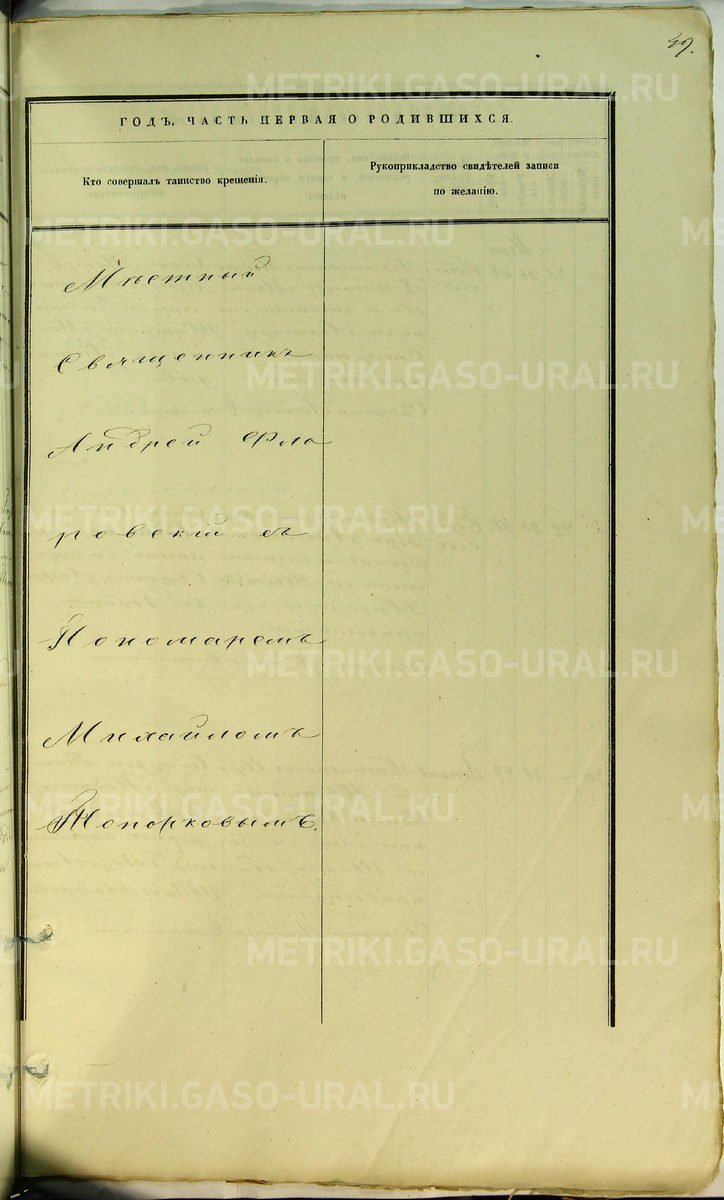 ГОДЪ, ЧАСТЬ ПЕРВАЯ О РОДИВШИХСЯ.
Кто совершалъ таинство крещенія.
Рукоприкладство свидѣтелей записи
по желанію.
Мѣстный
Священникъ
Андрей Фло
ровскій съ
Пономаремъ
Михайломъ
Топорковымъ.
METRIKI.GASO-URAL.RU